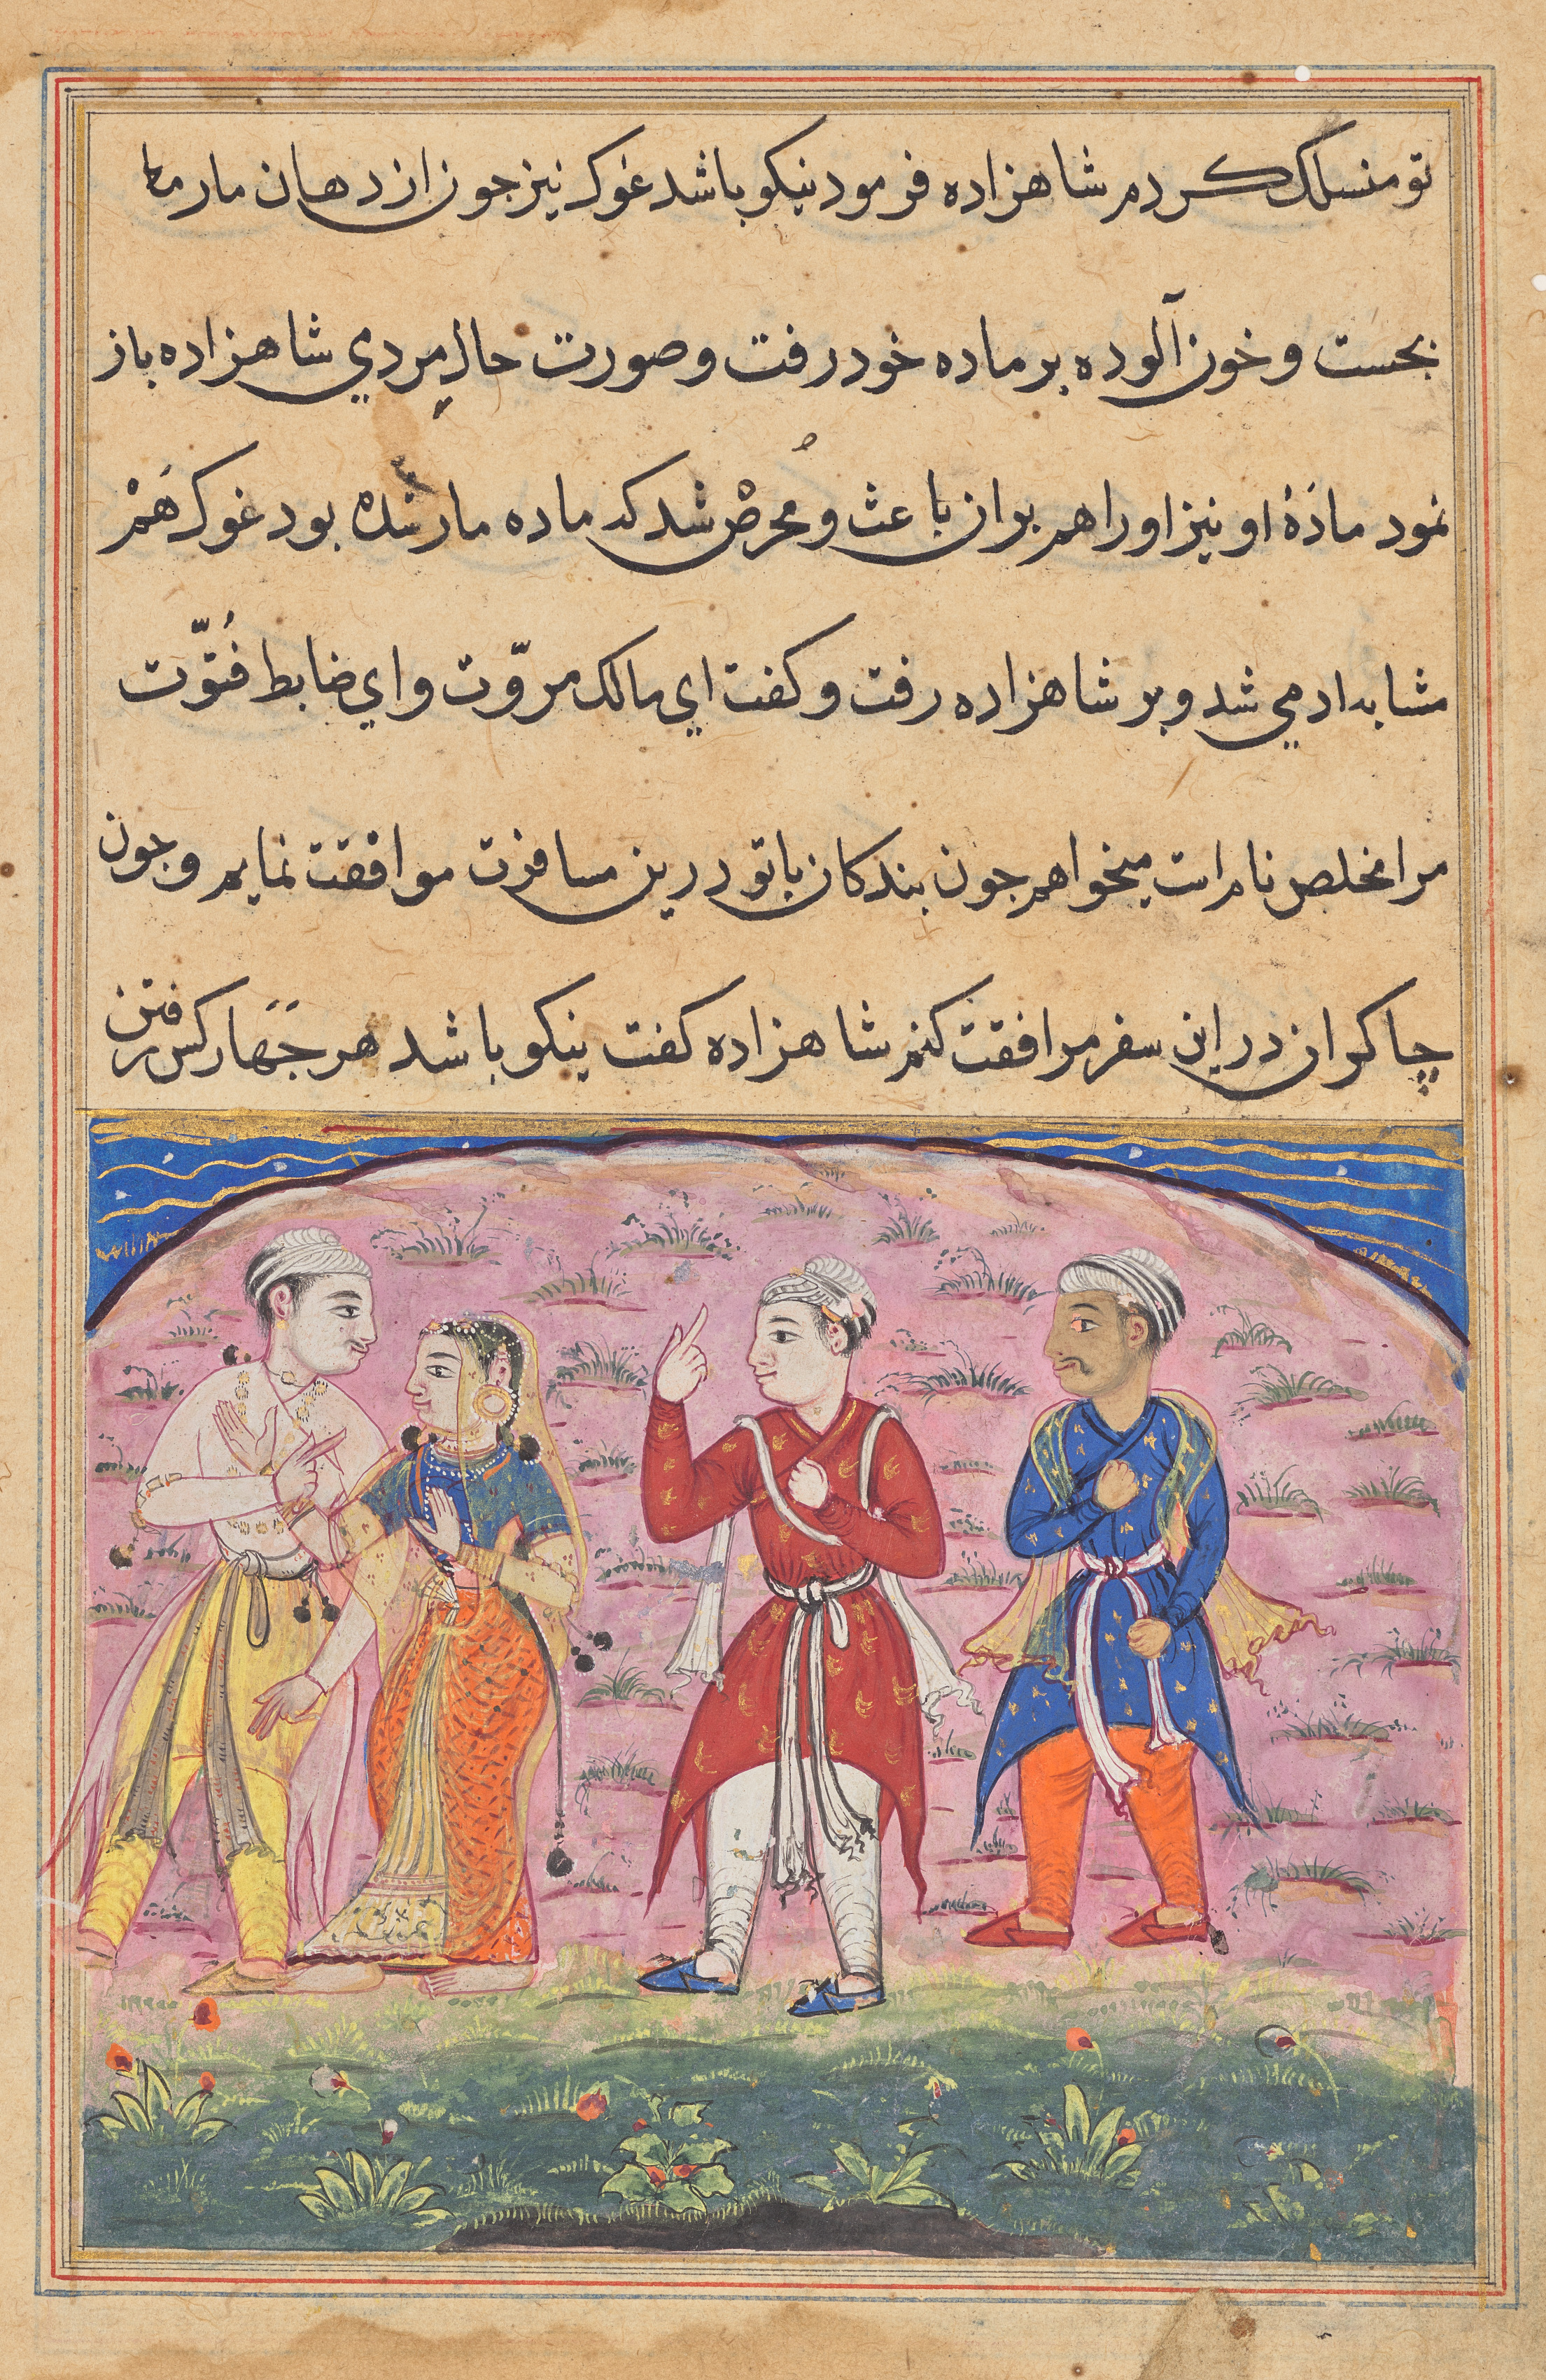 تو منسلک کردم شاهزاده فرمود نیکو باشد غوک نیز جون از دهان مار ما
بجست و خون آلوده بر ماده خود رفت و صورت حال مردمي شاهزاده باز
نمود مادۀ او نیز او را هم بران باعث و محرض شد که ماده مار شده بود غوک هم
مشابه ادمي شد و بر شاهزاده رفت و کفت اي مالک مروّت و اي ضابط فُتوّت
مرا مخلص نام است میخواهم جون بندکان با تو درین مسافرت موافقت نمایم و جون
چاکران در این سفر مرافقت کنم شاهزاده کفت نیکو باشد هر جَهَار کس رفتن